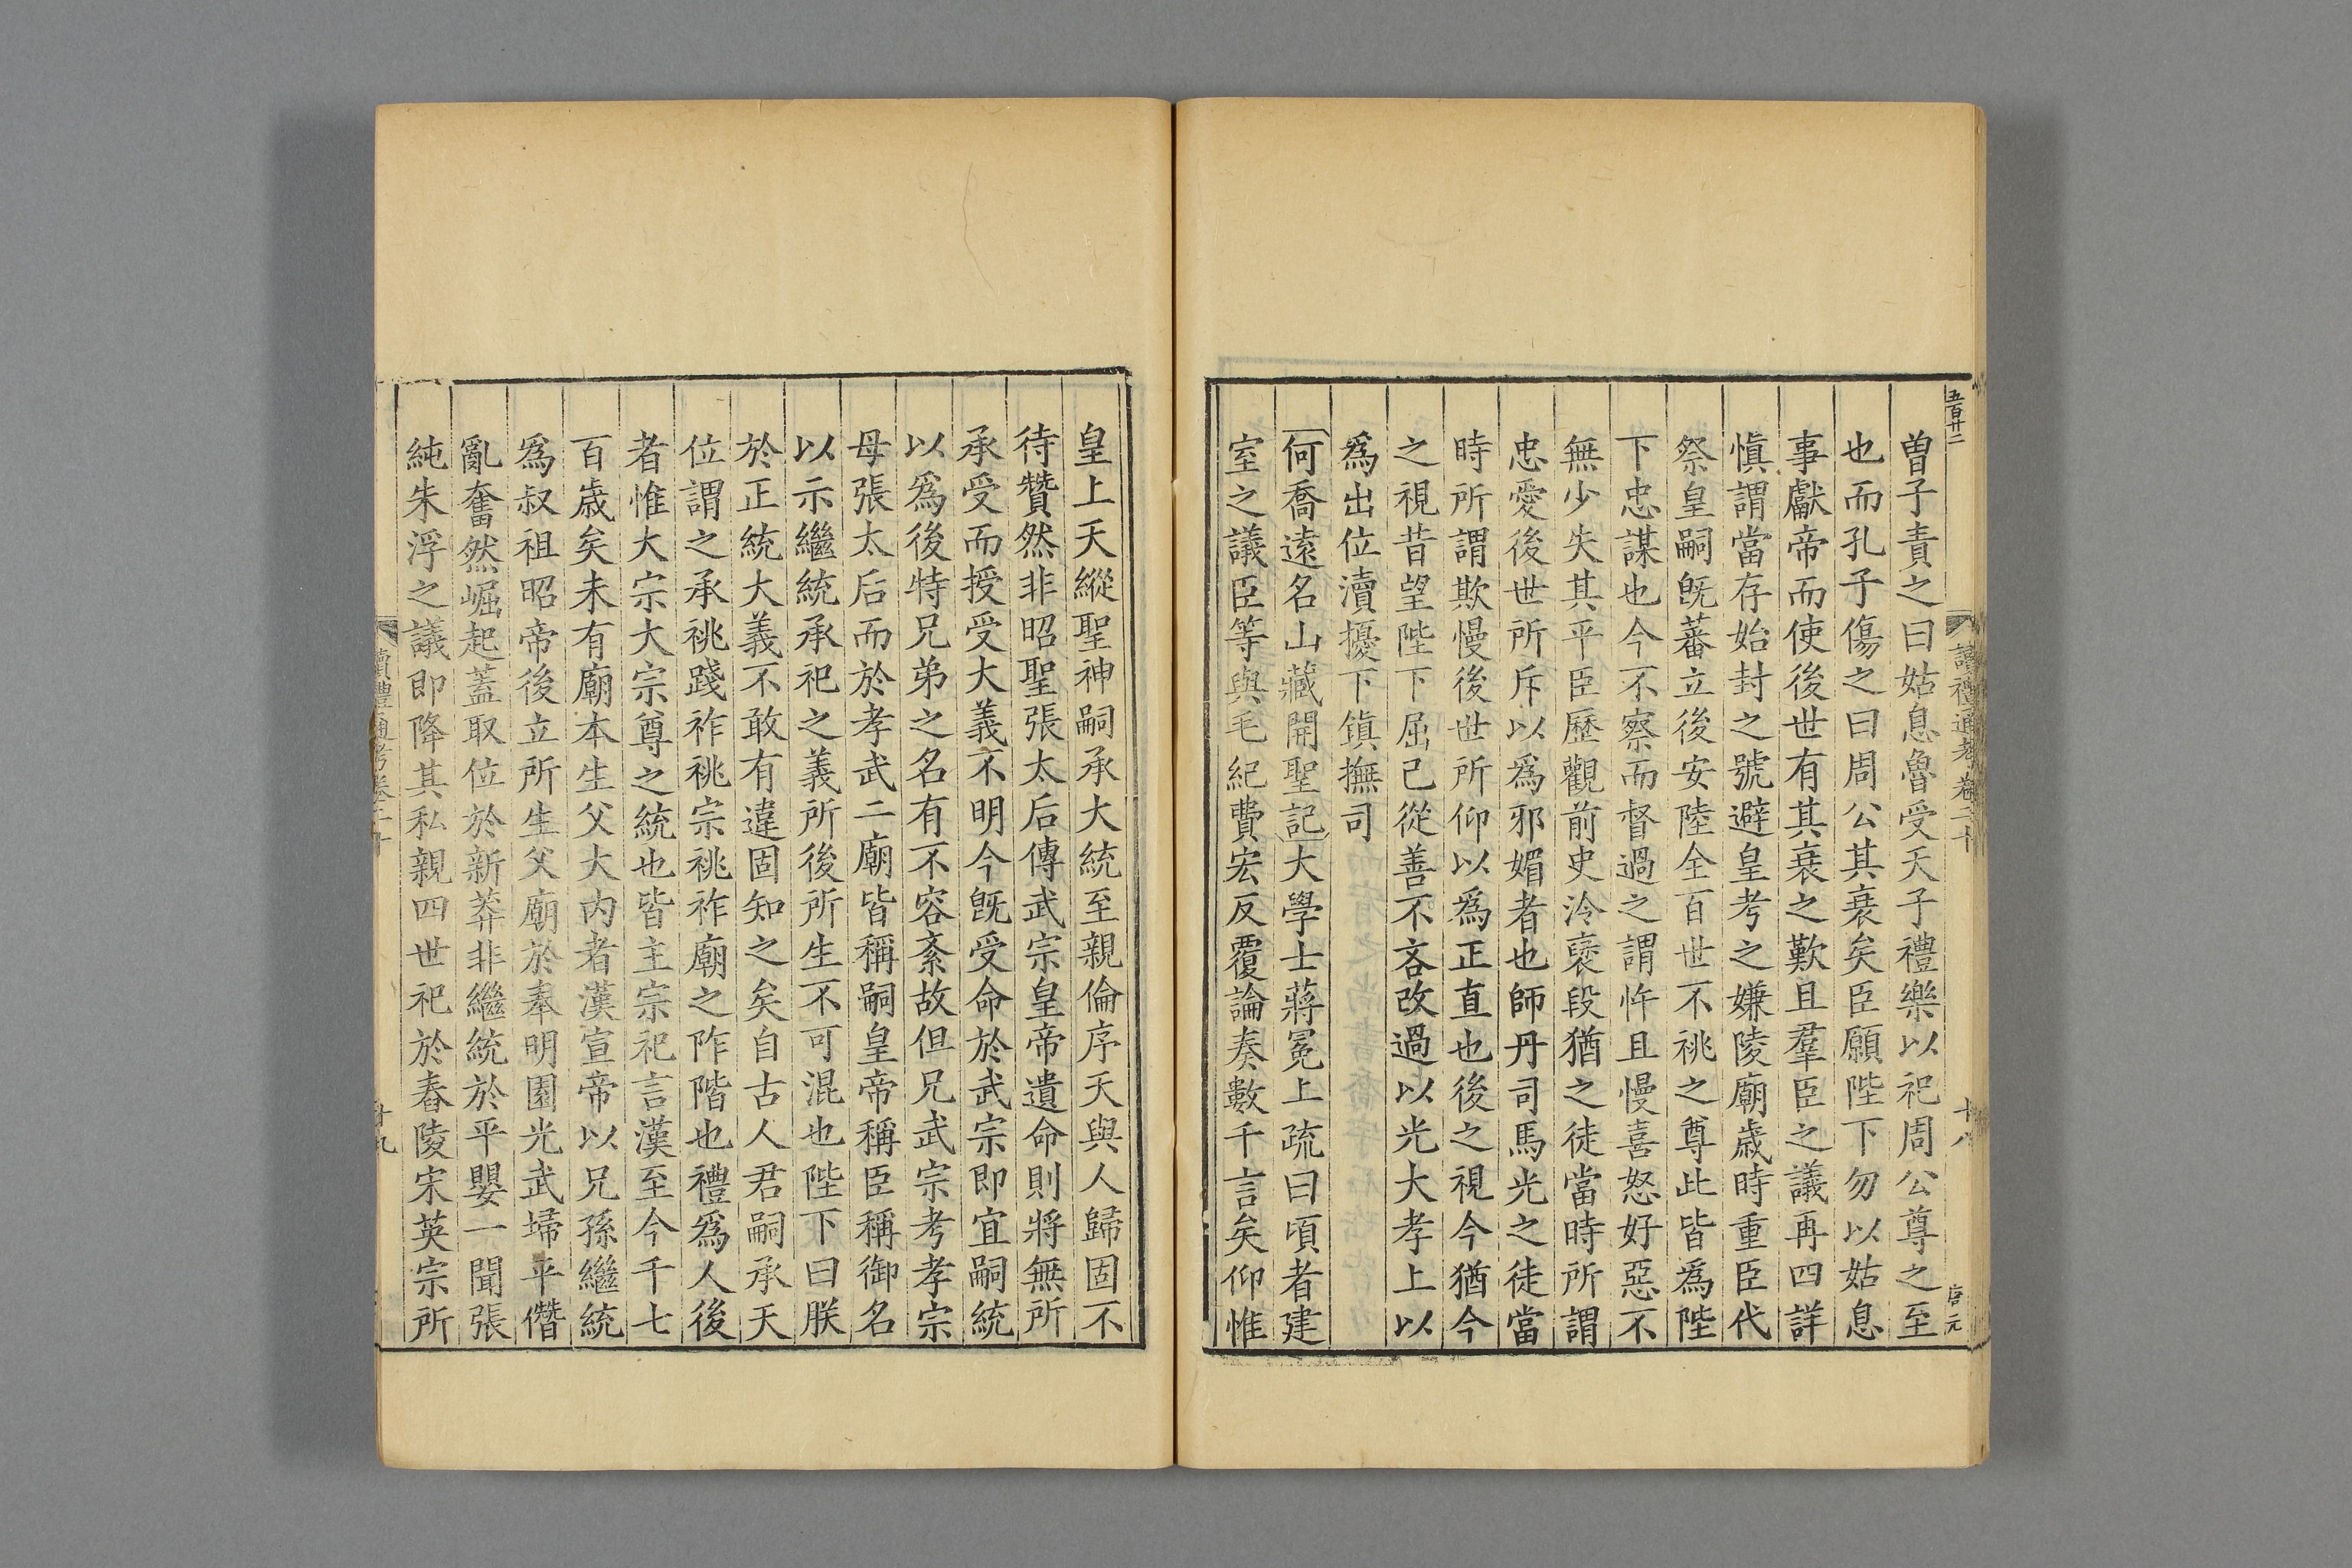 五百廿二
讀禮通考卷二十
十八
唐元
曾子責之曰姑息魯受天子禮樂以祀周公尊之至
也而孔子傷之曰周公其衰矣臣願陛下勿以姑息
事獻帝而使後世有其衰之歎且羣臣之議再四詳
愼謂當存始封之號避皇考之嫌陵廟歲時重臣代
祭皇嗣旣蕃立後安陸全百世不祧之尊此皆爲陛
下忠謀也今不察而督過之謂忤且慢喜怒好惡不
無少失其平臣歷觀前史泠襃段猶之徒當時所謂
忠愛後世所斥以爲邪媚者也師丹司馬光之徒當
時所謂欺慢後世所仰以爲正直也後之視今猶今
之視昔望陛下屈己從善不吝改過以光大孝上以
爲出位瀆擾下鎭撫司
何喬遠名山藏開聖記大學士蔣冕上疏曰頃者建
室之議臣等與毛紀費宏反覆論奏數千言矣仰惟
皇上天縱聖神嗣承大統至親倫序天與人歸固不
待贊然非昭聖張太后傳武宗皇帝遺命則將無所
承受而授受大義不明今旣受命於武宗即宜嗣統
以爲後特兄弟之名有不容紊故但兄武宗考孝宗
母張太后而於孝武二廟皆稱嗣皇帝稱臣稱御名
以示繼統承祀之義所後所生不可混也陛下曰朕
於正統大義不敢有違固知之矣自古人君嗣承天
位謂之承祧踐祚祧宗祧祚廟之阼階也禮爲人後
者惟大宗大宗尊之統也皆主宗祀言漢至今千七
百歲矣未有廟本生父大內者漢宣帝以兄孫繼統
爲叔祖昭帝後立所生父廟於奉明園光武埽平僭
亂奮然崛起蓋取位於新莽非繼統於平嬰一聞張
純朱浮之議即降其私親四世祀於舂陵宋英宗所
讀禮通考卷二十
十九